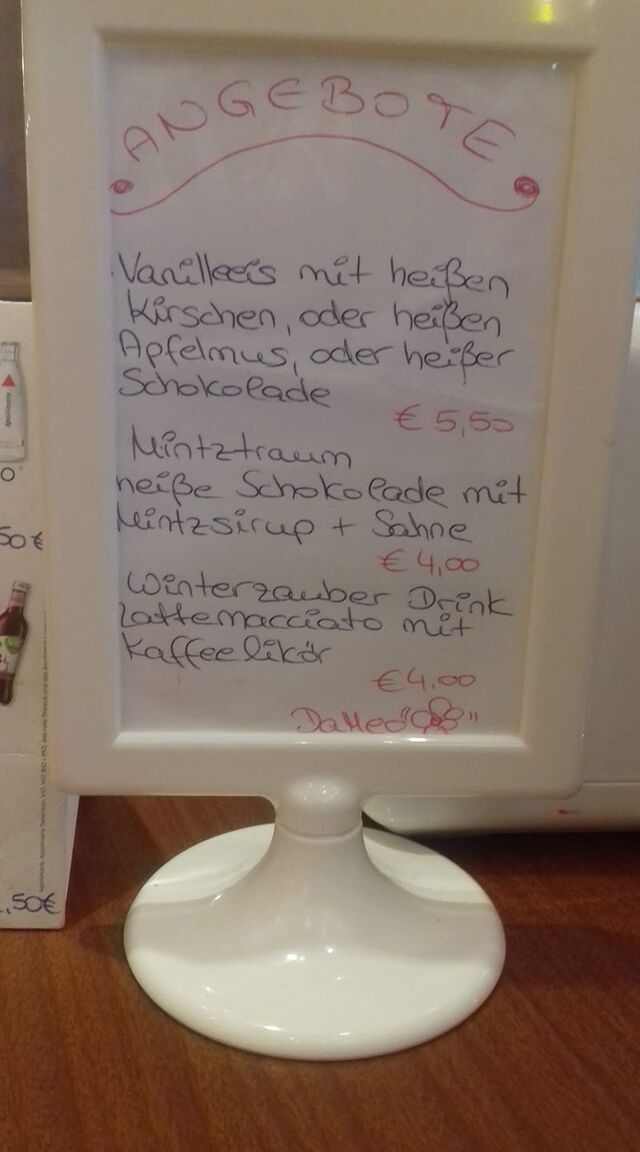 ANGEBOTE
Vanilleeis mit heißen
Kirschen, oder heißen
Apfelmus, oder heißer
Schokolade
€ 5,50
Mintztraum
heiße Schokolade mit
Mintzsirup + Sahne
€ 4,00
Winterzauber Drink
Lattemacciato mit
Kaffeelikör
€ 4,00
DaMeo
50€
,50€